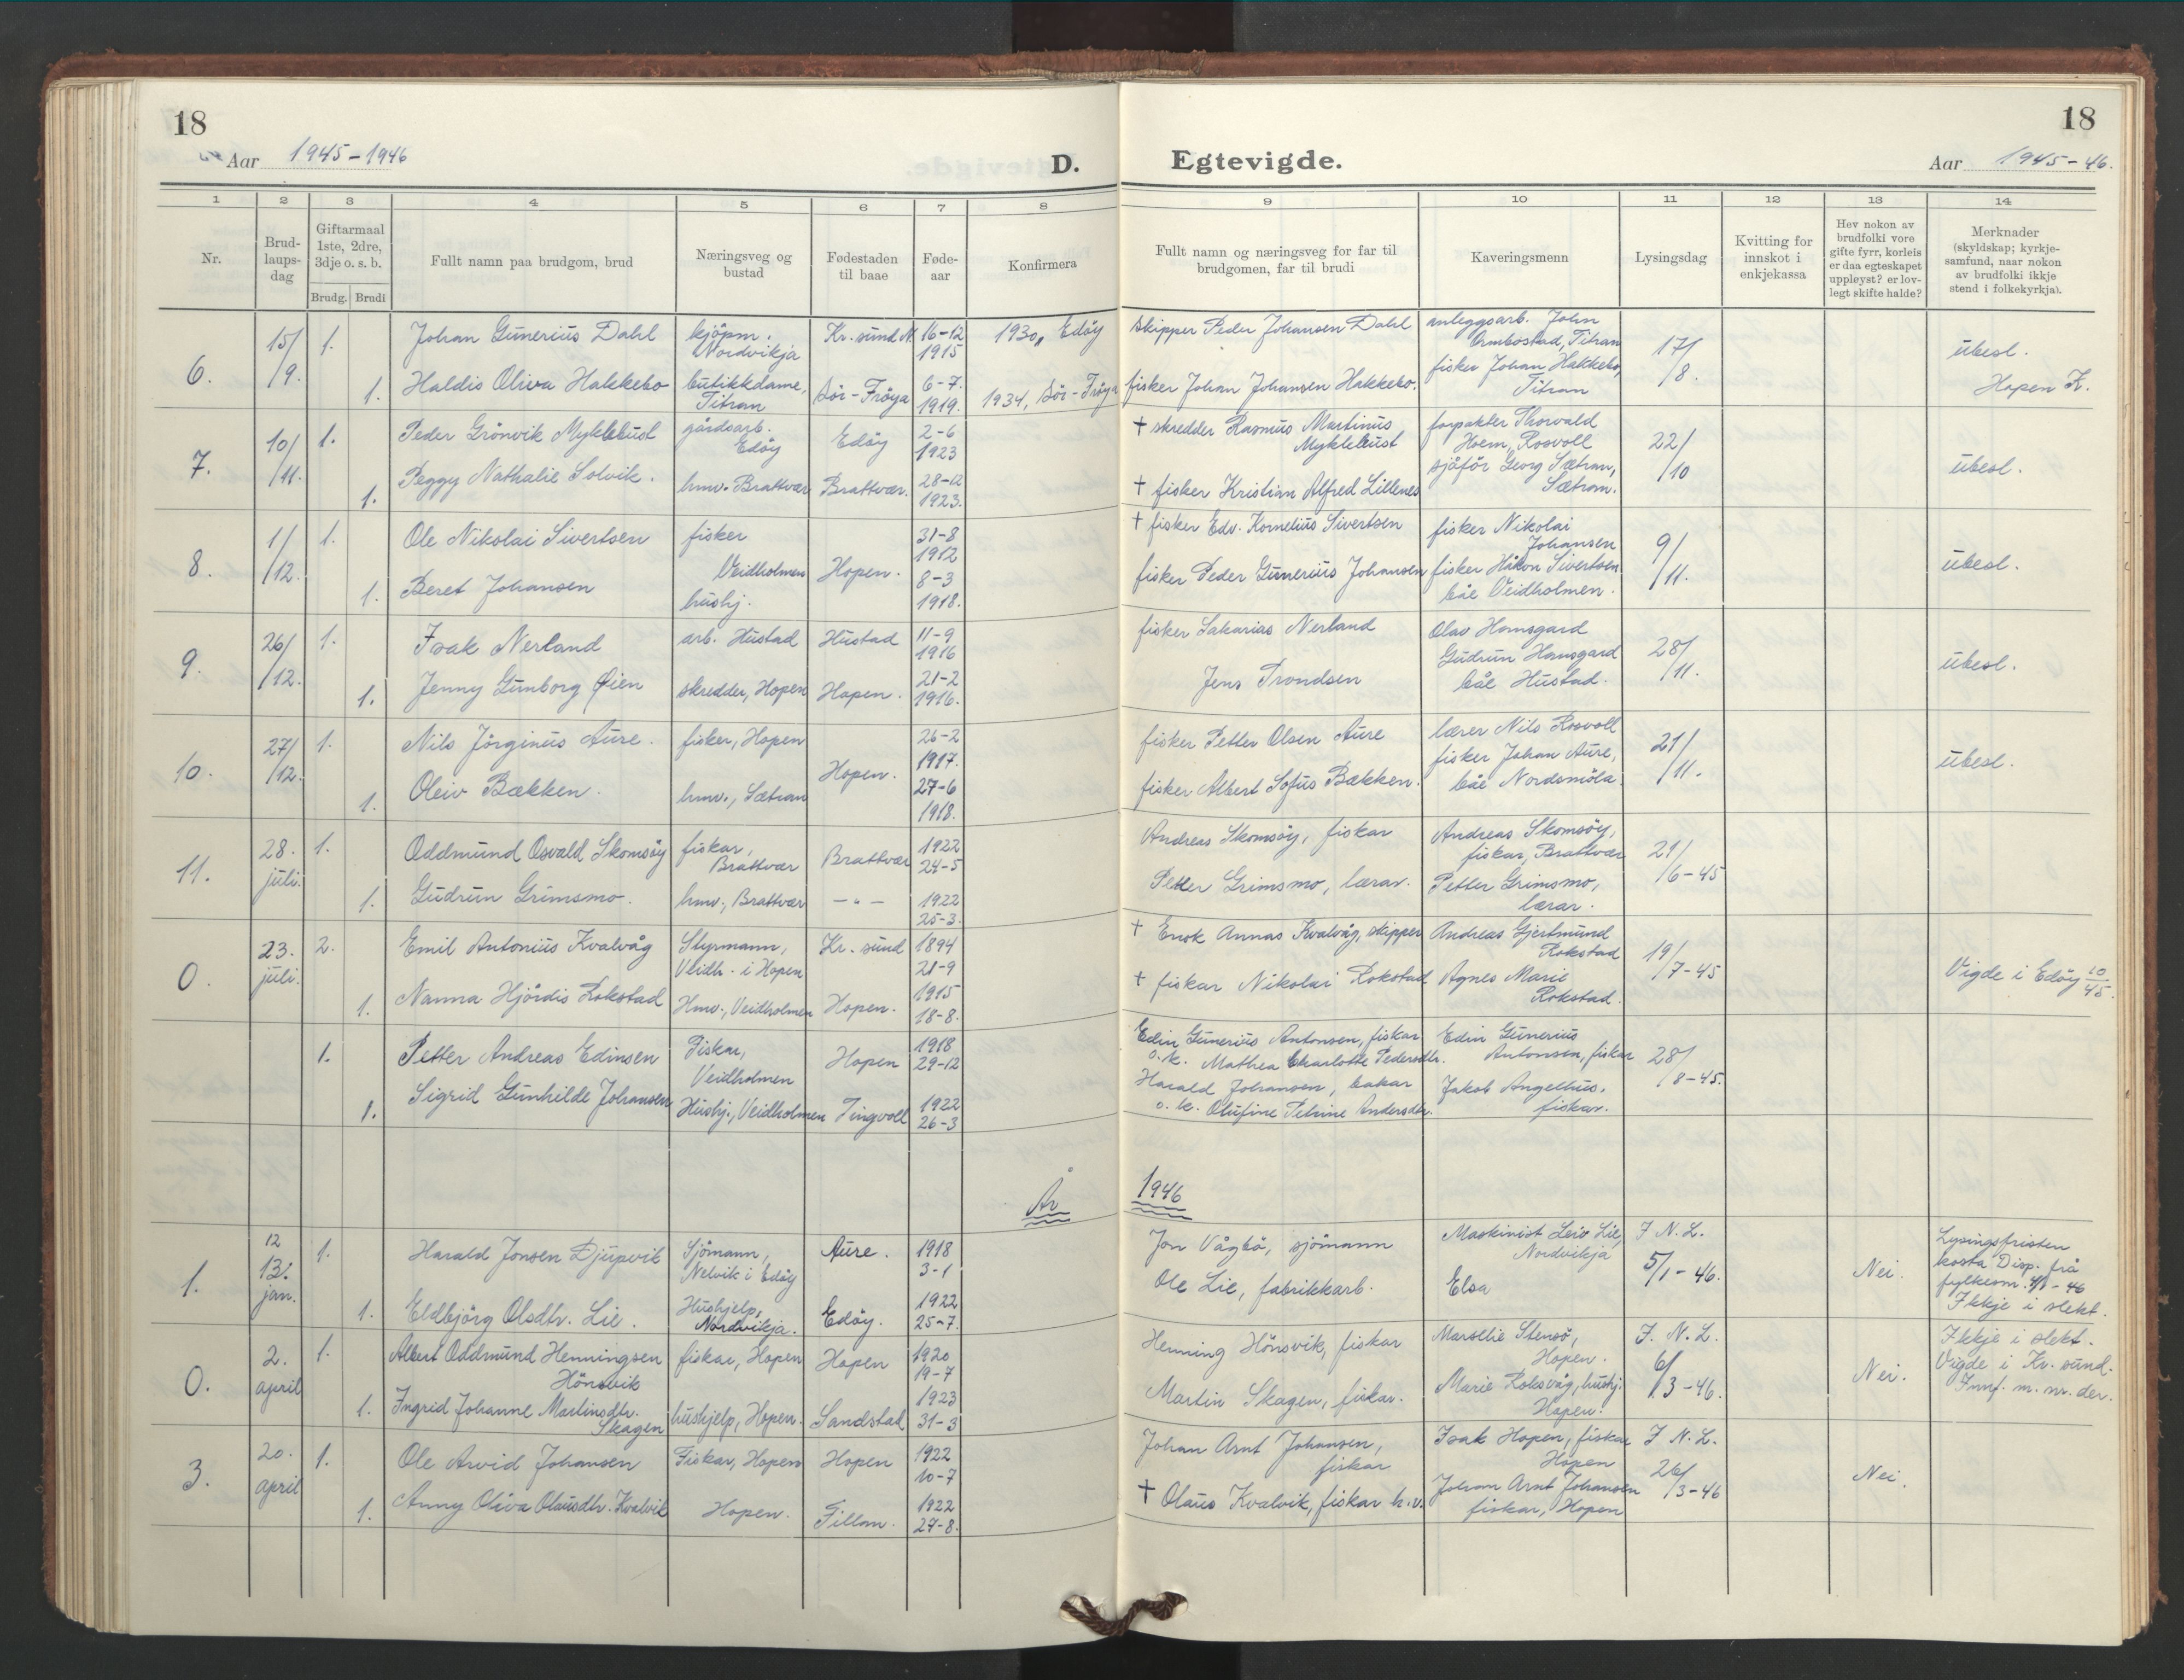 18
Aar 1945-1946
D.
Egtevigde.
18
Aar 1945-46.
1 2 3 4 5 6 7 8 9 10 11 12 13 14
Nr.
Brud-
laups-
dag
Giftarmaal
1ste, 2dre,
3dje o. s. b.
Brudg. Brudi
Fullt namn paa brudgom, brud
Næringsveg og
bustad
Fødestaden
til baae
Føde-
aar
Konfirmera
Fullt namn og næringsveg for far til
brudgomen, far til brudi
Kaveringsmenn
Lysingsdag
Kvitting for
innskot i
enkjekassa
Hev nokon av
brudfolki vore
gifte fyrr, korleis
er daa egteskapet
uppløyst? er lov-
legt skifte halde?
Merknader
(skyldskap; kyrkje-
samfund, naar nokon
av brudfolki ikkje
stend i folkekyrkja).
6. 15/9. 1. Johan Gunerius Dahl kjöpm. Nordvikja Kr.sund N. 16-12 1915 1930, Edöy
1. Haldis Oliva Hakkebo butikkdame, Titran Sör-Fröya 6-7. 1919. 1934, Sör-Fröya
skipper Peder Johansen Dahl
fisker Johan Johansen Hakkebo.
anleggsarb. John
Ormbostad, Titran
fisker Johan Hakkebo,
Titran
17/8.
ubesl.
Hopen K.
7. 10/11. 1. Peder Grönvik Myklebust gårdsarb. Edöy Edöy 2-6 1923
1. Peggy Nathalie Solvik. hmv. Brattvær Brattvær. 28-12 1923.
† skredder Rasmus Martinus
Myklebust
† fisker Kristian Alfred Lillenes
forpakter Thorvald
Hoem, Rosvoll
sjåför Georg Sætran,
Sætran.
22/10
ubesl.
8. 1/12. 1. Ole Nikolai Sivertsen fisker Veidholmen Hopen. 31-8 1912
1. Beret Johansen hushj. 8-3 1918.
† fisker Edv. Kornelius Sivertsen
fisker Peder Gunerius Johansen
fisker Nikolai
Johansen
fisker Håkon Sivertsen
båe Veidholmen.
9/11.
ubesl.
9. 26/12. 1. Isak Nerland arb. Hustad Hustad 11-9 1916
1. Jenny Gunborg Øien skredder, Hopen Hopen. 21-2 1916.
fisker Sakarias Nerland
Jens Trondsen
Olav Hamsgard
Gudrun Hamsgard
båe Hustad.
28/11.
ubesl.
10. 27/12. 1. Nils Jörginus Aure. fisker, Hopen Hopen. 26-2 1917.
1. Oleiv Bækken. hmv., Sætran 27-6 1918.
fisker Petter Olsen Aure
fisker Albert Sofus Bækken.
lærer Nils Rosvoll
fisker Johan Aure,
båe Nordsmöla
21/11.
ubesl.
11. 28. juli. 1. Oddmund Osvald Skomsöy fiskar, Brattvær Brattvær 1922 24-5
1. Gudrun Grimsmo. hmv., Brattvær -"- 1922 25-3.
Andreas Skomsöy, fiskar
Petter Grimsmo, lærar.
Andreas Skomsöy,
fiskar, Brattvær
Petter Grimsmo,
lærar.
21/6-45
0. 23. juli. 2. Emil Antonius Kvalvåg Styrmann, Veidh. i Hopen Kr. sund 1894 21-9
1. Nanna Hjördis Rokstad Hmv., Veidholmen Hopen. 1915 18-8.
† Enok Annas Kvalvåg, skipper
† fiskar Nikolai Rokstad
Andreas Gjertmund
Rokstad
Agnes Marie
Rokstad.
19/7-45
Vigde i Edöy 10/45.
1. Petter Andreas Edinsen Fiskar, Veidholmen Hopen 1918 29-12
1. Sigrid Gunhilde Johansen Hushj., Veidholmen Tingvoll 1922 26-3
Edin Gunerius Antonsen, fiskar
o.k. Mathea Charlotte Pedersdtr.
Harald Johansen, bakar
o.k. Olufine Petrine Andersdtr.
Edin Gunerius
Antonsen, fiskar
Jakob Angelhus.
fiskar.
28/8-45.
År 1946
1. 12 13. jan. 1. Harald Jonsen Djupvik Sjömann, Nelvik i Edöy Aure. 1918 3-1
1. Eldbjörg Olsdtr. Lie. Hushjelp, Nordvikja. Edöy. 1922 25-7.
Jon Vågbö, sjömann
Ole Lie, fabrikkarb.
Maskinist Leiv Lie,
Nordvikja
Elsa
I N. L.
5/1-46.
Nei.
Lysingsfristen
korta Disp. frå
fylkesm. 4/1-46
Ikkje i slekt.
0. 2. april 1. Albert Oddmund Henningsen Hönsvik fiskar, Hopen Hopen 1920 19-7
1. Ingrid Johanne Martinsdtr. Skagen hushjelp, Hopen. Sandstad 1923 31-3
Henning Hönsvik, fiskar
Martin Skagen, fiskar.
Marselie Stensö,
Hopen.
Marie Roksvåg, hushj.
Hopen.
I. N. L.
6/3-46.
Nei.
Ikkje i slekt.
Vigde i Kr. sund.
Innf. m. nr. der.
3. 20. april 1. Ole Arvid Johansen Fiskar, Hopen Hopen 1922 10-7
1. Anny Oliva Olausdtr. Kvalvik Hopen. Fillan. 1922 27-8.
Johan Arnt Johansen,
fiskar
† Olaus Kvalvik, fiskar h.v.
Isak Hopen, fiskar
Hopen
Johan Arnt Johansen
fiskar, Hopen
I N. L.
26/3-46
Nei.